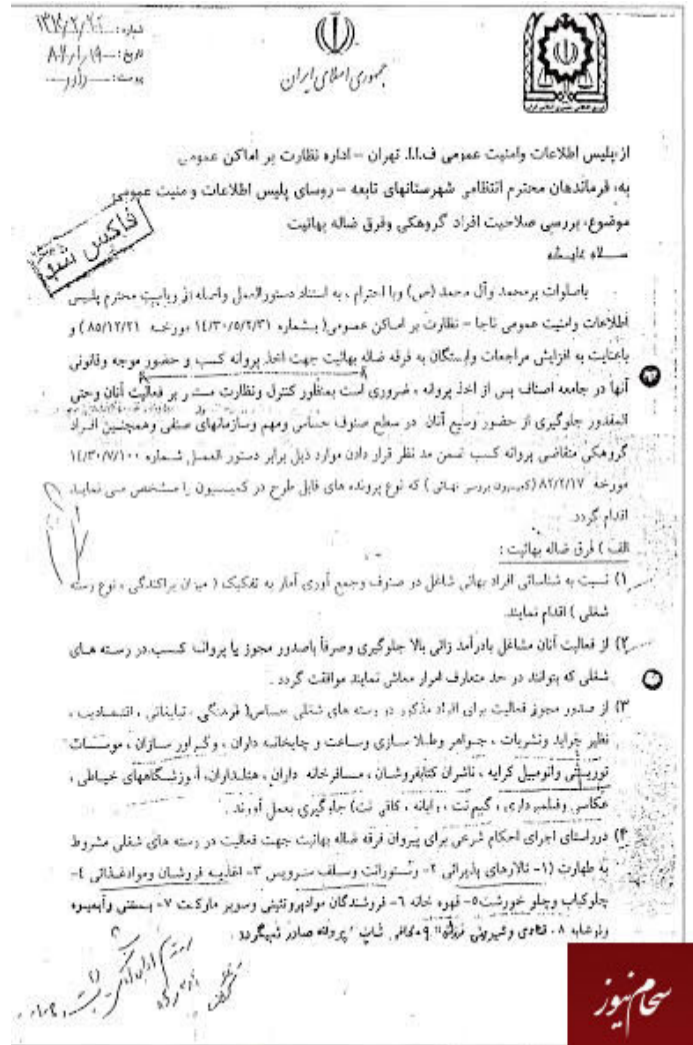 شماره :
تاریخ : ۸۶/۱/۱۹
پیوست : ندارد
جمهوری اسلامی ایران
از: پلیس اطلاعات وامنیت عمومی ف.ا.ا. تهران – اداره نظارت بر اماکن عمومی
به: فرماندهان محترم انتظامی شهرستانهای تابعه – روسای پلیس اطلاعات و منیت عمومی
موضوع: بررسی صلاحیت افراد گروهکی وفرق ضاله بهائیت
فاکس شد
ســلام علیکم
باصلوات برمحمد وآل محمد (ص) وبا احترام ، به استناد دستورالعمل واصله از ریاست محترم پلیس
اطلاعات وامنیت عمومی ناجا – نظارت بر اماکن عمومی( بشماره ۱٤/۳۰/۵/۲/۳۱ مورخـه ۸۵/۱۲/۲۱ ) و
باعنایت به افزایش مراجعات وابستگان به فرقه ضاله بهائیت جهت اخذ پروانه کسب و حضور موجه وقانونی
آنها در جامعه اصناف پس از اخذ پروانه ، ضروری است بمنظور کنترل ونظارت مستمر بر فعالیت آنان وحتی
المقدور جلوگیری از حضور وسیع آنان در سطح صنوف حساس ومهم وسازمانهای صنفی وهمچنین افـراد
گروهکی متقاضی پروانه کسب ضمن مد نظر قرار دادن موارد ذیل برابر دستور العمـل شـماره ۱٤/۳۰/۷/۱۰۰
مورخه ۸۲/۲/۱۷ (کمیسیون بررسی بهائی ) که نوع پرونده های قابل طرح در کمیسیون را مشخص می نمایـد
اقدام گردد.
الف ) فرق ضاله بهائیت :
۱) نسبت به شناسائی افراد بهائی شاغل در صنوف وجمع آوری آمار به تفکیک ( میزان پراکندگی ، نوع رسته
شغلی ) اقدام نمایند.
۲) از فعالیت آنان مشاغل بادرآمد زائی بالا جلوگیری وصرفاً باصدور مجوز یا پروانه کسب در رسته هـای
شغلی که بتوانند در حد متعارف امرار معاش نمایند موافقت گردد .
۳) از صدور مجوز فعالیت برای افراد مذکور در رسته های شغلی حساس( فرهنگی ، تبلیغاتی ، اقتصادی ،
نظیر جراید ونشریات ، جـواهر وطلا سـازی وسـاعت و چاپخانـه داران ، وگـراور سـازان ، موسسـات
توریستی واتومبیل کرایه ، ناشران کتابفروشـان ، مسـافرخانه داران ، هتلـداران، آموزشـگاههای خیـاطی ،
عکاسی وفیلمبرداری ، گیم نت ، رایانه ، کافی نت) جلوگیری بعمل آورند .
۴) درراستای اجرای احکام شرعی برای پیروان فرقه ضاله بهائیت جهت فعالیت در رسته های شغلی مشروط
به طهارت (۱- تالارهای پذیرائی ۲- رستورانت وسلف سرویس ۳- اغذیـه فروشـان وموادغـذائی ٤-
چلوکباب وچلو خورشت۵- قهوه خانه ٦- فروشندگان موادپروتئینی وسوپر مارکـت ۷- بسـتنی وآبمیـوه
ونوشابه ۸- قنادی وشیرینی فروشی ۹- کافی شاپ ) پروانه صادر نمیگردد .
سحام نیوز